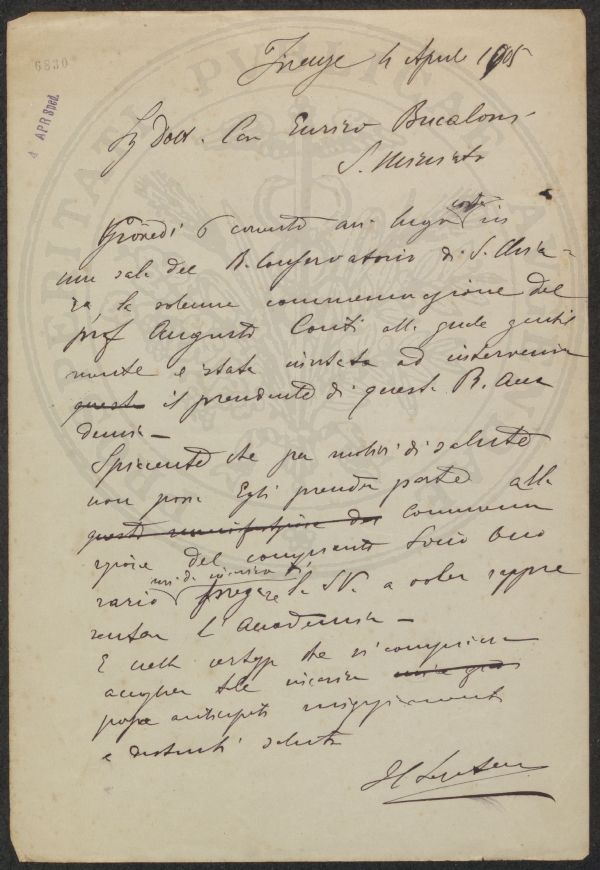 6830
4 APR Sped.
Firenze 4 Aprile 1905
Sig Dott. Can Enrico Bucaloni
S. Miniato
Giovedì 6 corrente avrà luogo costì in
una sala del R. Conservatorio di S. Chia-
ra, la solenne commemorazione del
prof Augusto Conti alla quale gentil
mente è stato invitato ad intervenire
questo il presidente di questa R. Acca
demia –
Spiacente che per motivi di salute
non possa Egli prender parte alla
questa manifestazione del commemo
razione del compianto Socio Ono
rario mi dà incarico di pregare la SV. a voler rappre
sentare l'Accademia –
E nella certezza che si compiacerà
accoglier tale incarico
porgo anticipati ringraziamenti
e distinti saluti
Il Segretario